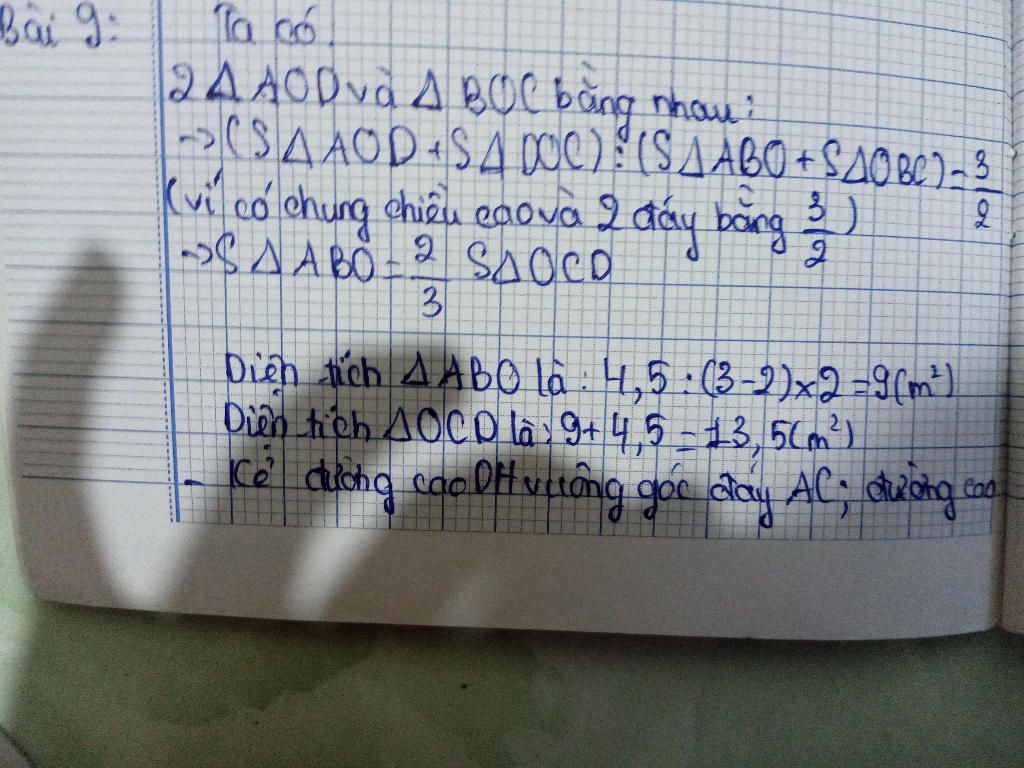 Bài 9: Ta có
2 Δ AOD và Δ BOC bằng nhau:
→ (S Δ AOD + S Δ DOC) : (S Δ ABO + S Δ OBC) = 3/2
(vì có chung chiều cao và 2 đáy bằng 3/2)
→ S Δ ABO = 2/3 S Δ OCD
Diện tích Δ ABO là : 4,5 : (3-2) x 2 = 9 (m²)
Diện tích Δ OCD là : 9 + 4,5 = 13,5 (m²)
- Kẻ đường cao DH vuông góc đáy AC; đường cao